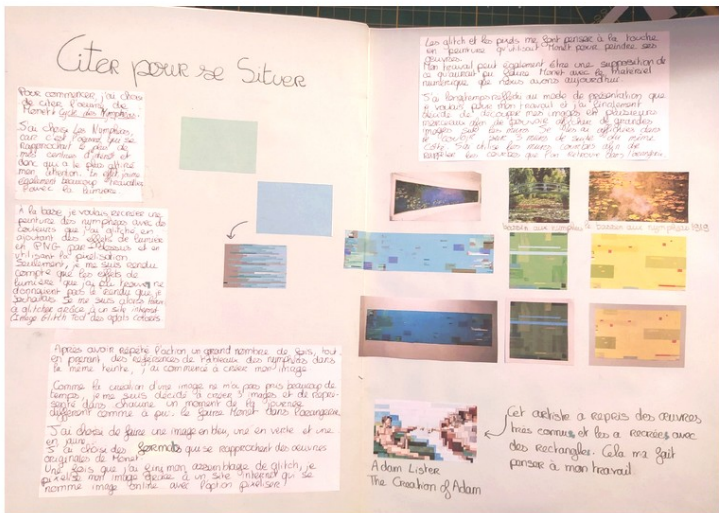 Citer pour se Situer
Pour commencer, j'ai choisi
de citer l'oeuvre de
Monet Cycle des Nymphéas.
J'ai choisi les Nymphéas,
car c'est l'oeuvre qui se
rapprochait le plus de
mes centres d'intérêt et
donc qui a le plus attiré
mon attention. Le
également beaucoup travailler
avec la lumière
À la base, je voulais recréer une
peinture des nymphéas avec des
couleurs que j'ai glitché, en
ajoutant des effets de lumière
en PNG par dessus et en
utilisant la pixelisation.
Seulement, je me suis rendu
compte que les effets de
lumière que j'ai pu trouver ne
donnaient pas le rendu que je
souhaitais. Je me suis alors
à glitcher grâce à un site internet
(Image Glitch Tool) des aplats colorés
Après avoir répété l'action un grand nombre de fois, tout
en prenant des références de tableaux des nymphéas dans
la même teinte, j'ai commencé à créer mon image
Comme la création d'une image ne m'a pas pris beaucoup de
temps, je me suis décidé à créer 3 images et de repré-
senté dans chacune un moment de la journée
différent comme a pu le faire Monet dans l'orangerie.
J'ai choisi de faire une image en bleu, une en verte et une
en jaune.
J'ai choisi des formats qui se rapprochent des oeuvres
originales de Monet.
Une fois que j'ai fini mon assemblage de glitch, je
pixelise mon image grâce à un site internet qui se
nomme image online avec l'option pixeliser
Les glitch et les pixels me font penser à la touche
en peinture qu'utilisait Monet pour peindre ses
oeuvres.
Mon travail peut également être une supposition de
ce qu'aurait pu faire Monet avec le matériel
numérique que nous avons aujourd'hui.
J'ai longtemps réfléchi au mode de présentation que
pour mon travail et j'ai finalement
décidé de découper mes images en plusieurs
morceaux afin de pouvoir afficher de grandes
images sur les murs. Je les ai affichées dans
le couloir pour 3 murs de suite du même
côté. J'ai utilisé les murs courbés afin de
rappeler les courbes que l'on retrouve dans l'orangerie.
bassin aux nymphéas le bassin aux nymphéas 1919
Cet artiste a repris des oeuvres
très connues et les a recréées avec
des rectangles. Cela m'a fait
penser à mon travail
Adam Lister
The Creation of Adam